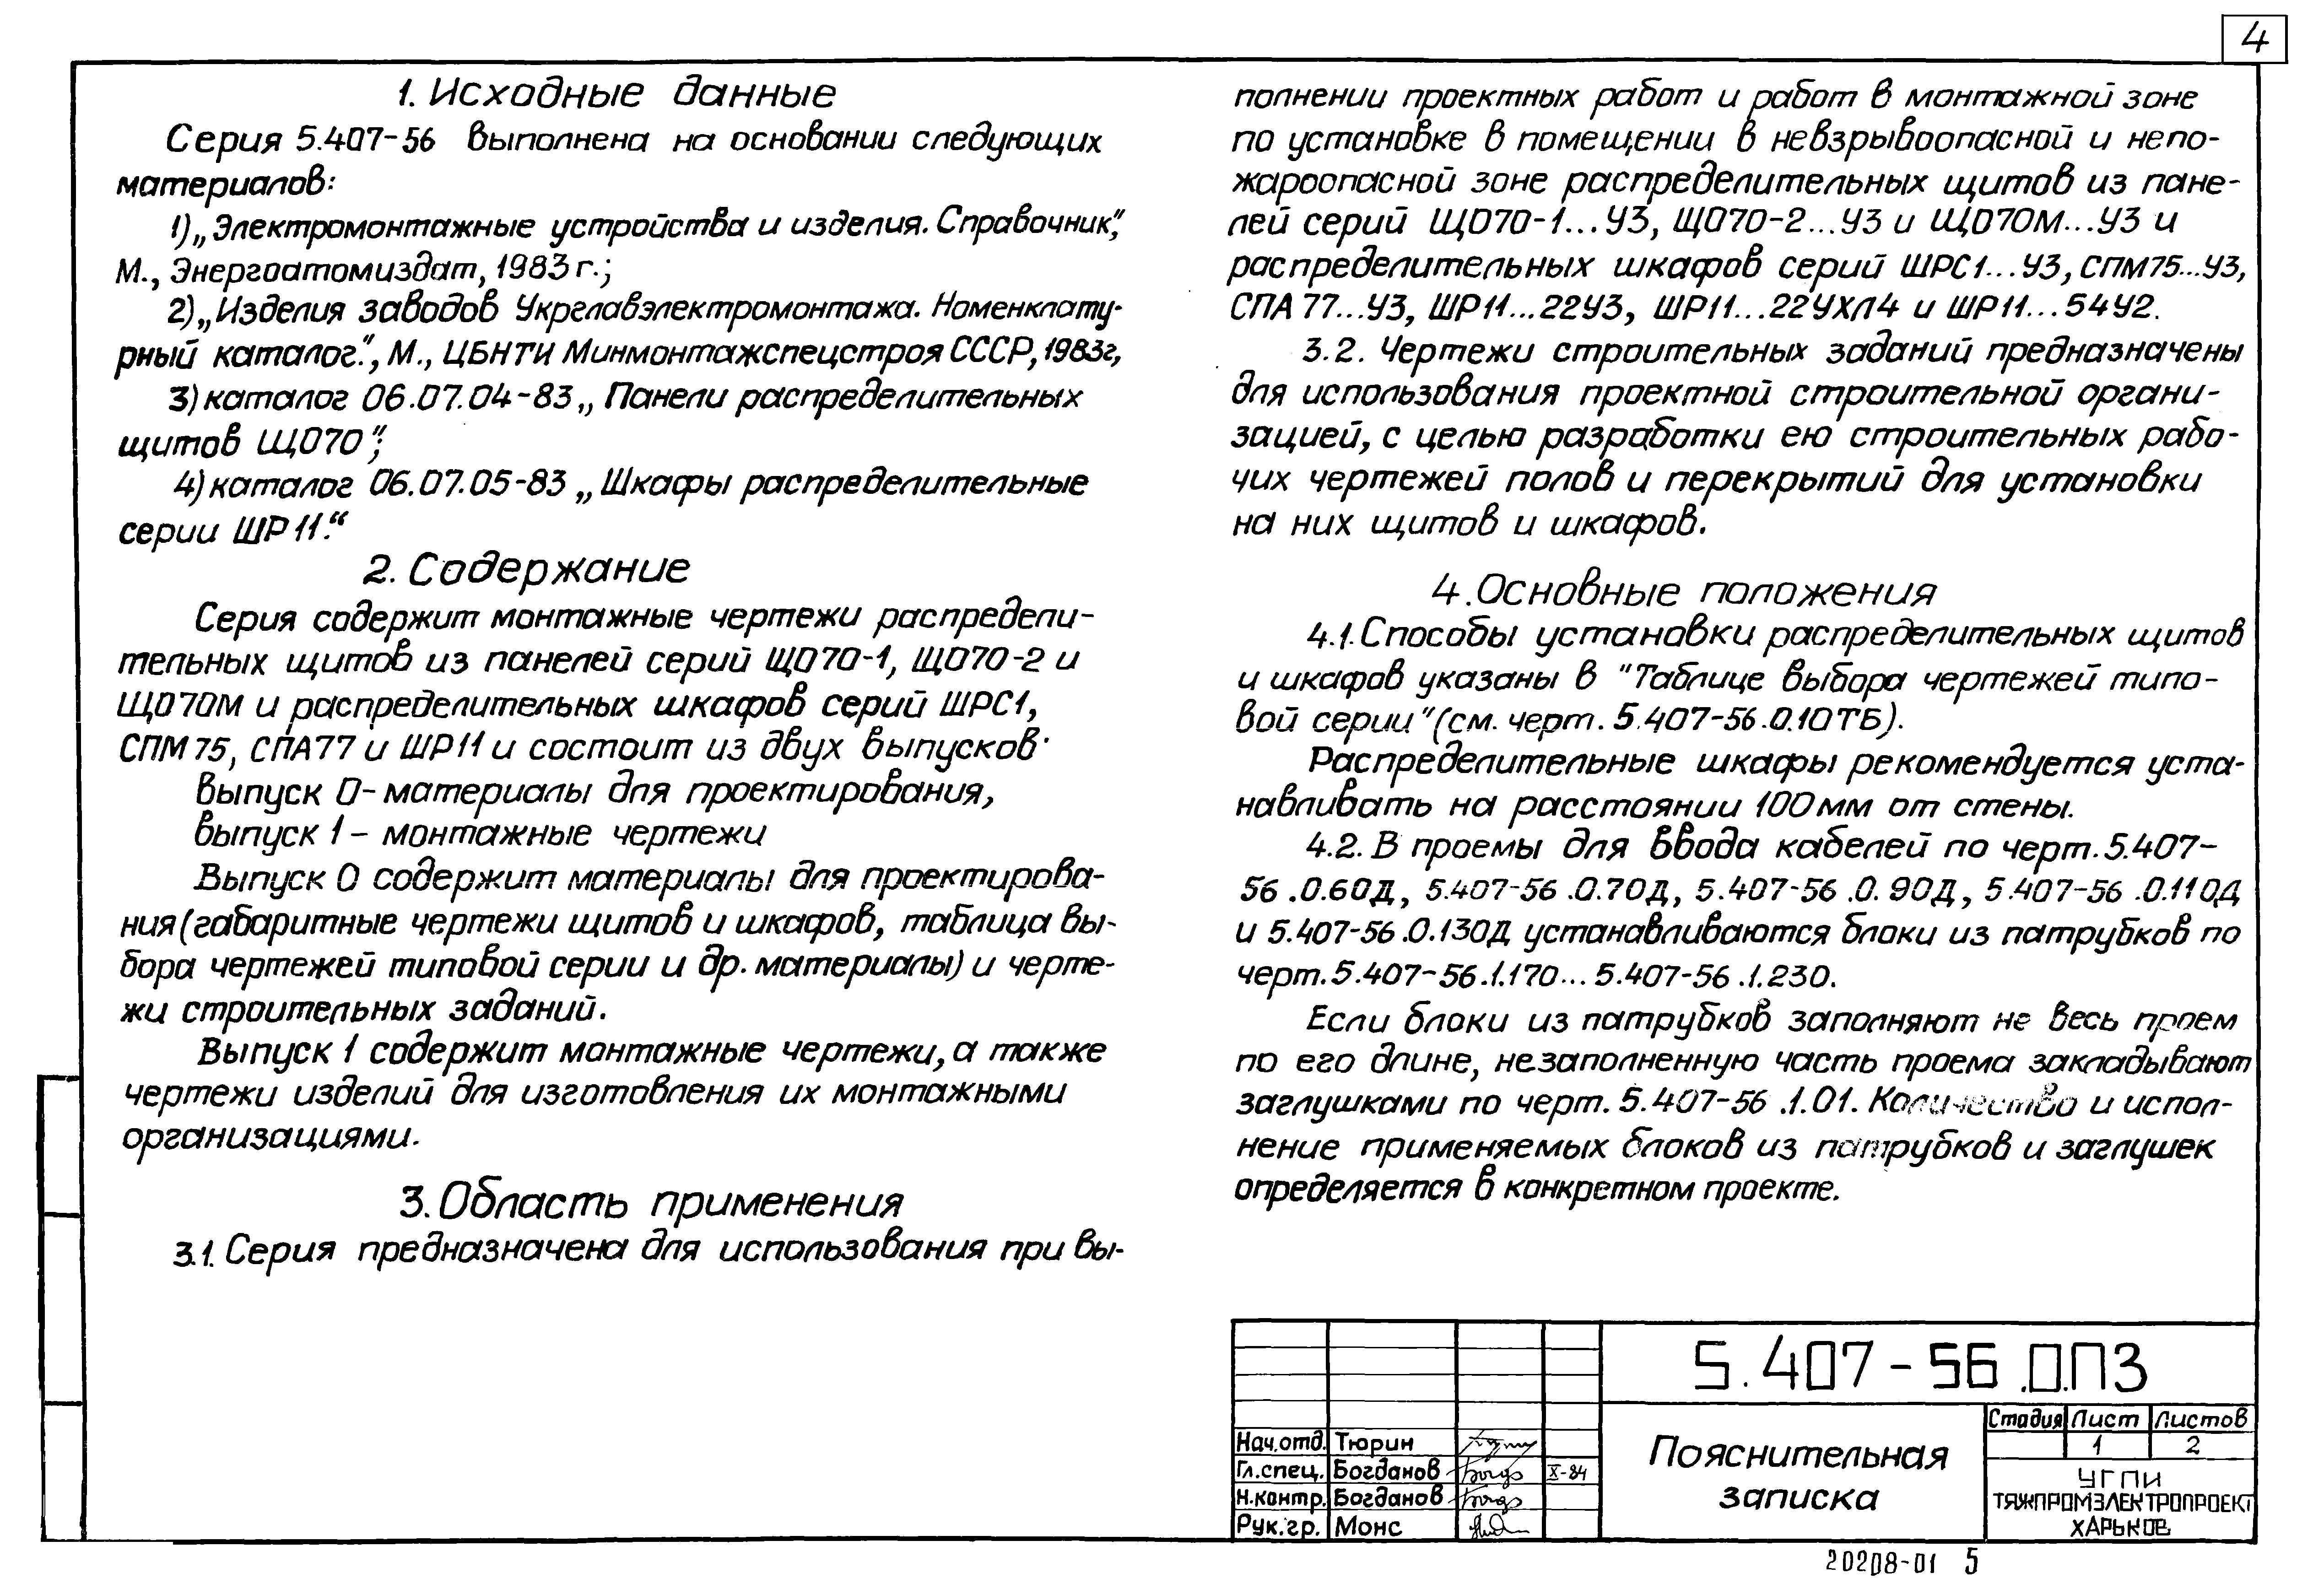 4
1. Исходные данные
Серия 5.407-56 выполнена на основании следующих
материалов:
1) „Электромонтажные устройства и изделия. Справочник",
М., Энергоатомиздат, 1983 г.;
2) „Изделия заводов Укрглавэлектромонтажа. Номенклату-
рный каталог.", М., ЦБНТИ Минмонтажспецстроя СССР, 1983г,
3) каталог 06.07.04-83 „Панели распределительных
щитов ЩО70";
4) каталог 06.07.05-83 „Шкафы распределительные
серии ШР11."
2. Содержание
Серия содержит монтажные чертежи распредели-
тельных щитов из панелей серий ЩО70-1, ЩО70-2 и
ЩО70М и распределительных шкафов серий ШРС1,
СПМ75, СПА77 и ШР11 и состоит из двух выпусков·
выпуск 0- материалы для проектирования,
выпуск 1 - монтажные чертежи
Выпуск 0 содержит материалы для проектирова-
ния (габаритные чертежи щитов и шкафов, таблица вы-
бора чертежей типовой серии и др. материалы) и черте-
жи строительных заданий.
Выпуск 1 содержит монтажные чертежи, а также
чертежи изделий для изготовления их монтажными
организациями.
3. Область применения
3.1. Серия предназначена для использования при вы-
полнении проектных работ и работ в монтажной зоне
по установке в помещении в невзрывоопасной и непо-
жароопасной зоне распределительных щитов из пане-
лей серий ЩО70-1...У3, ЩО70-2...У3 и ЩО70М...У3 и
распределительных шкафов серий ШРС1...У3, СПМ75...У3,
СПА77...У3, ШР11...22У3, ШР11...22УХЛ4 и ШР11...54У2.
3.2. Чертежи строительных заданий предназначены
для использования проектной строительной органи-
зацией, с целью разработки ею строительных рабо-
чих чертежей полов и перекрытий для установки
на них щитов и шкафов.
4. Основные положения
4.1. Способы установки распределительных щитов
и шкафов указаны в "Таблице выбора чертежей типо-
вой серии" (см. черт. 5.407-56.0.10ТБ).
Распределительные шкафы рекомендуется уста-
навливать на расстоянии 100мм от стены.
4.2. В проемы для ввода кабелей по черт. 5.407-
56.0.60Д, 5.407-56.0.70Д, 5.407-56.0.90Д, 5.407-56.0.110Д
и 5.407-56.0.130Д устанавливаются блоки из патрубков по
черт. 5.407-56.1.170... 5.407-56.1.230.
Если блоки из патрубков заполняют не весь проем
по его длине, незаполненную часть проема закладывают
заглушками по черт. 5.407-56.1.01. Количество и испол-
нение применяемых блоков из патрубков и заглушек
определяется в конкретном проекте.
5.407-56.0.ПЗ
Пояснительная
записка
Стадия Лист Листов
1 2
УГПИ
ТЯЖПРОМЭЛЕКТРОПРОЕКТ
ХАРЬКОВ
Нач.отд. Тюрин
Гл.спец. Богданов X-84
Н.контр. Богданов
Рук.гр. Монс
20208-01 5